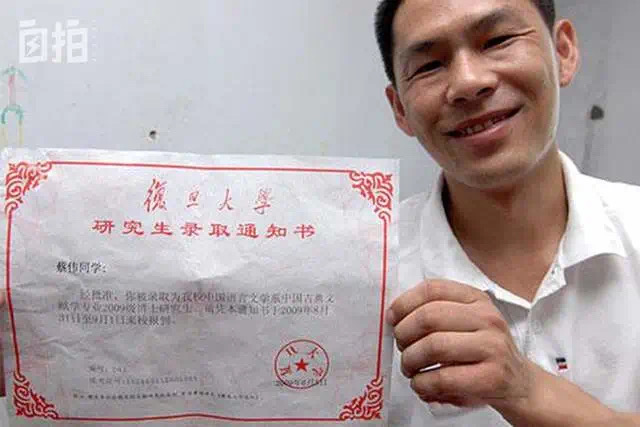 自拍
復旦大學
研究生录取通知书
蔡伟同学:
经批准，你被录取为我校中国语言文学系中国古典文
献学专业2009级博士研究生，请凭本通知书于2009年8月
31日至9月1日来校报到。
2009年6月8日